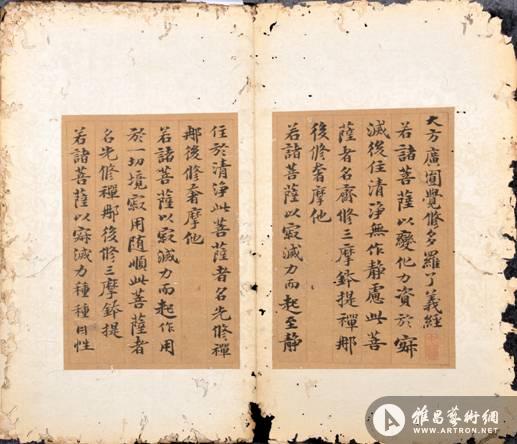 大方廣圓覺修多羅了義經
若諸菩薩以變化力資於寂
滅後住清淨無作靜慮此菩
薩者名齊修三摩鉢提禪那
後修奢摩他
若諸菩薩以寂滅力而起至靜
住於清淨此菩薩者名先修禪
那後修奢摩他
若諸菩薩以寂滅力而起作用
於一切境寂用随順此菩薩者
名先修禪那後修三摩鉢提
若諸菩薩以寂滅力種種自性
雅昌藝術網
WWW.ARTRON.NET